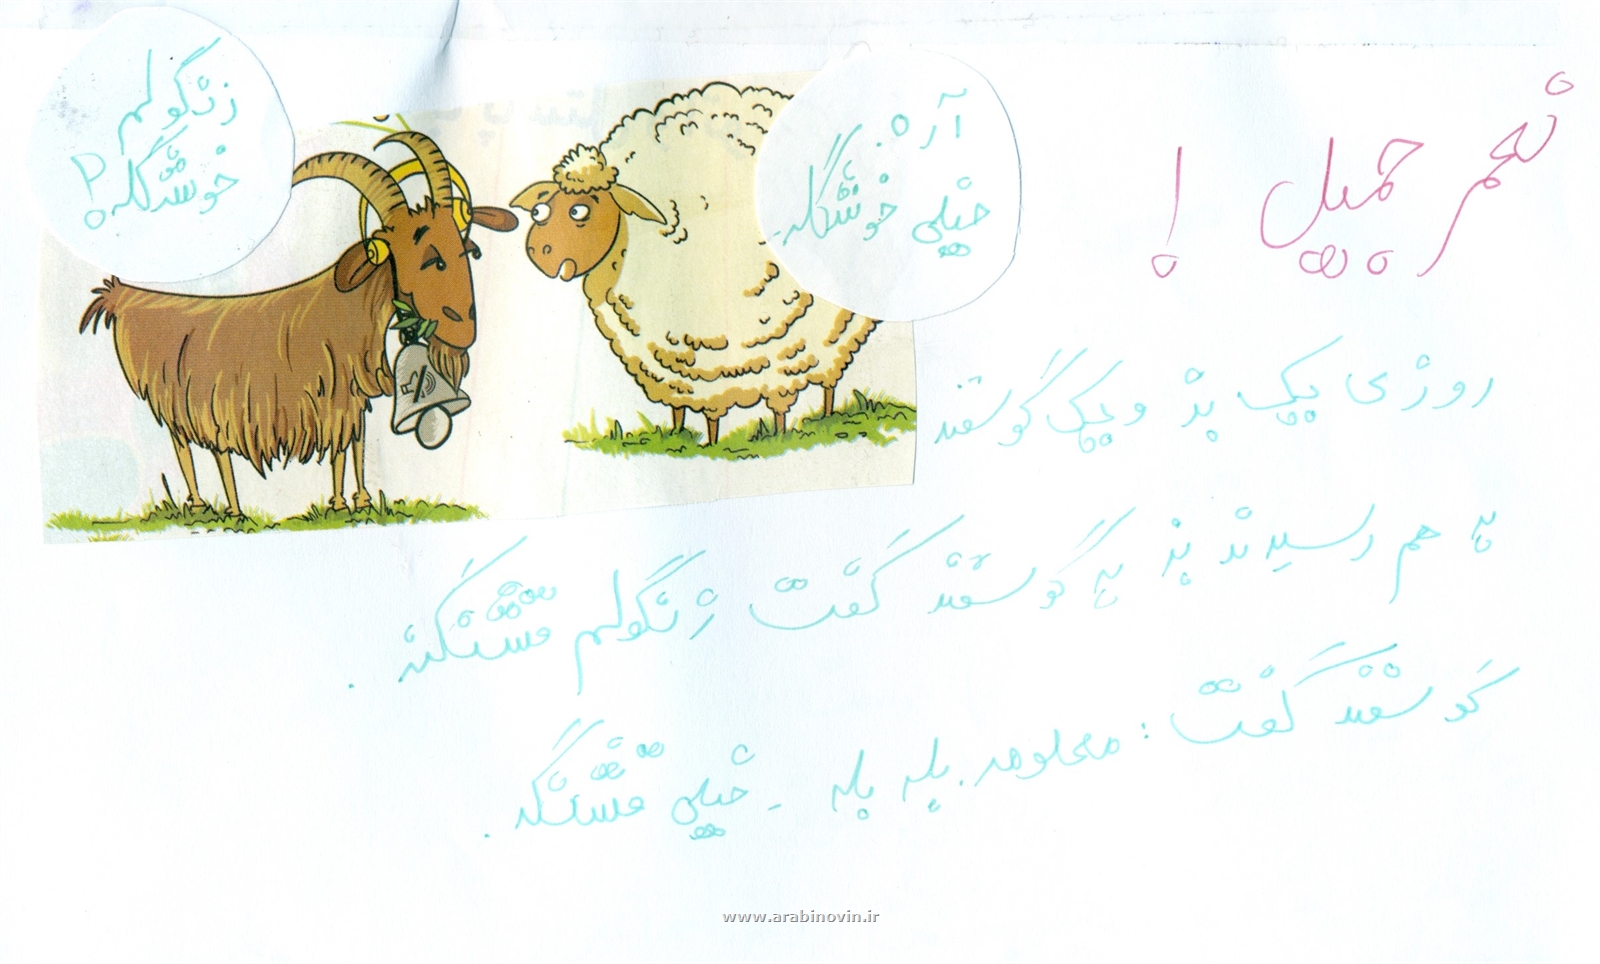 نعم جمیل !
زنگولم
خوشگله؟!
آره.
خیلی خوشگله.
روزی یک بز و یک گوسفند
به هم رسیدند بز به گوسفند گفت زنگولم قشنگه .
گوسفند گفت : معلومه. بله بله - خیلی قشنگه .
www.arabinovin.ir